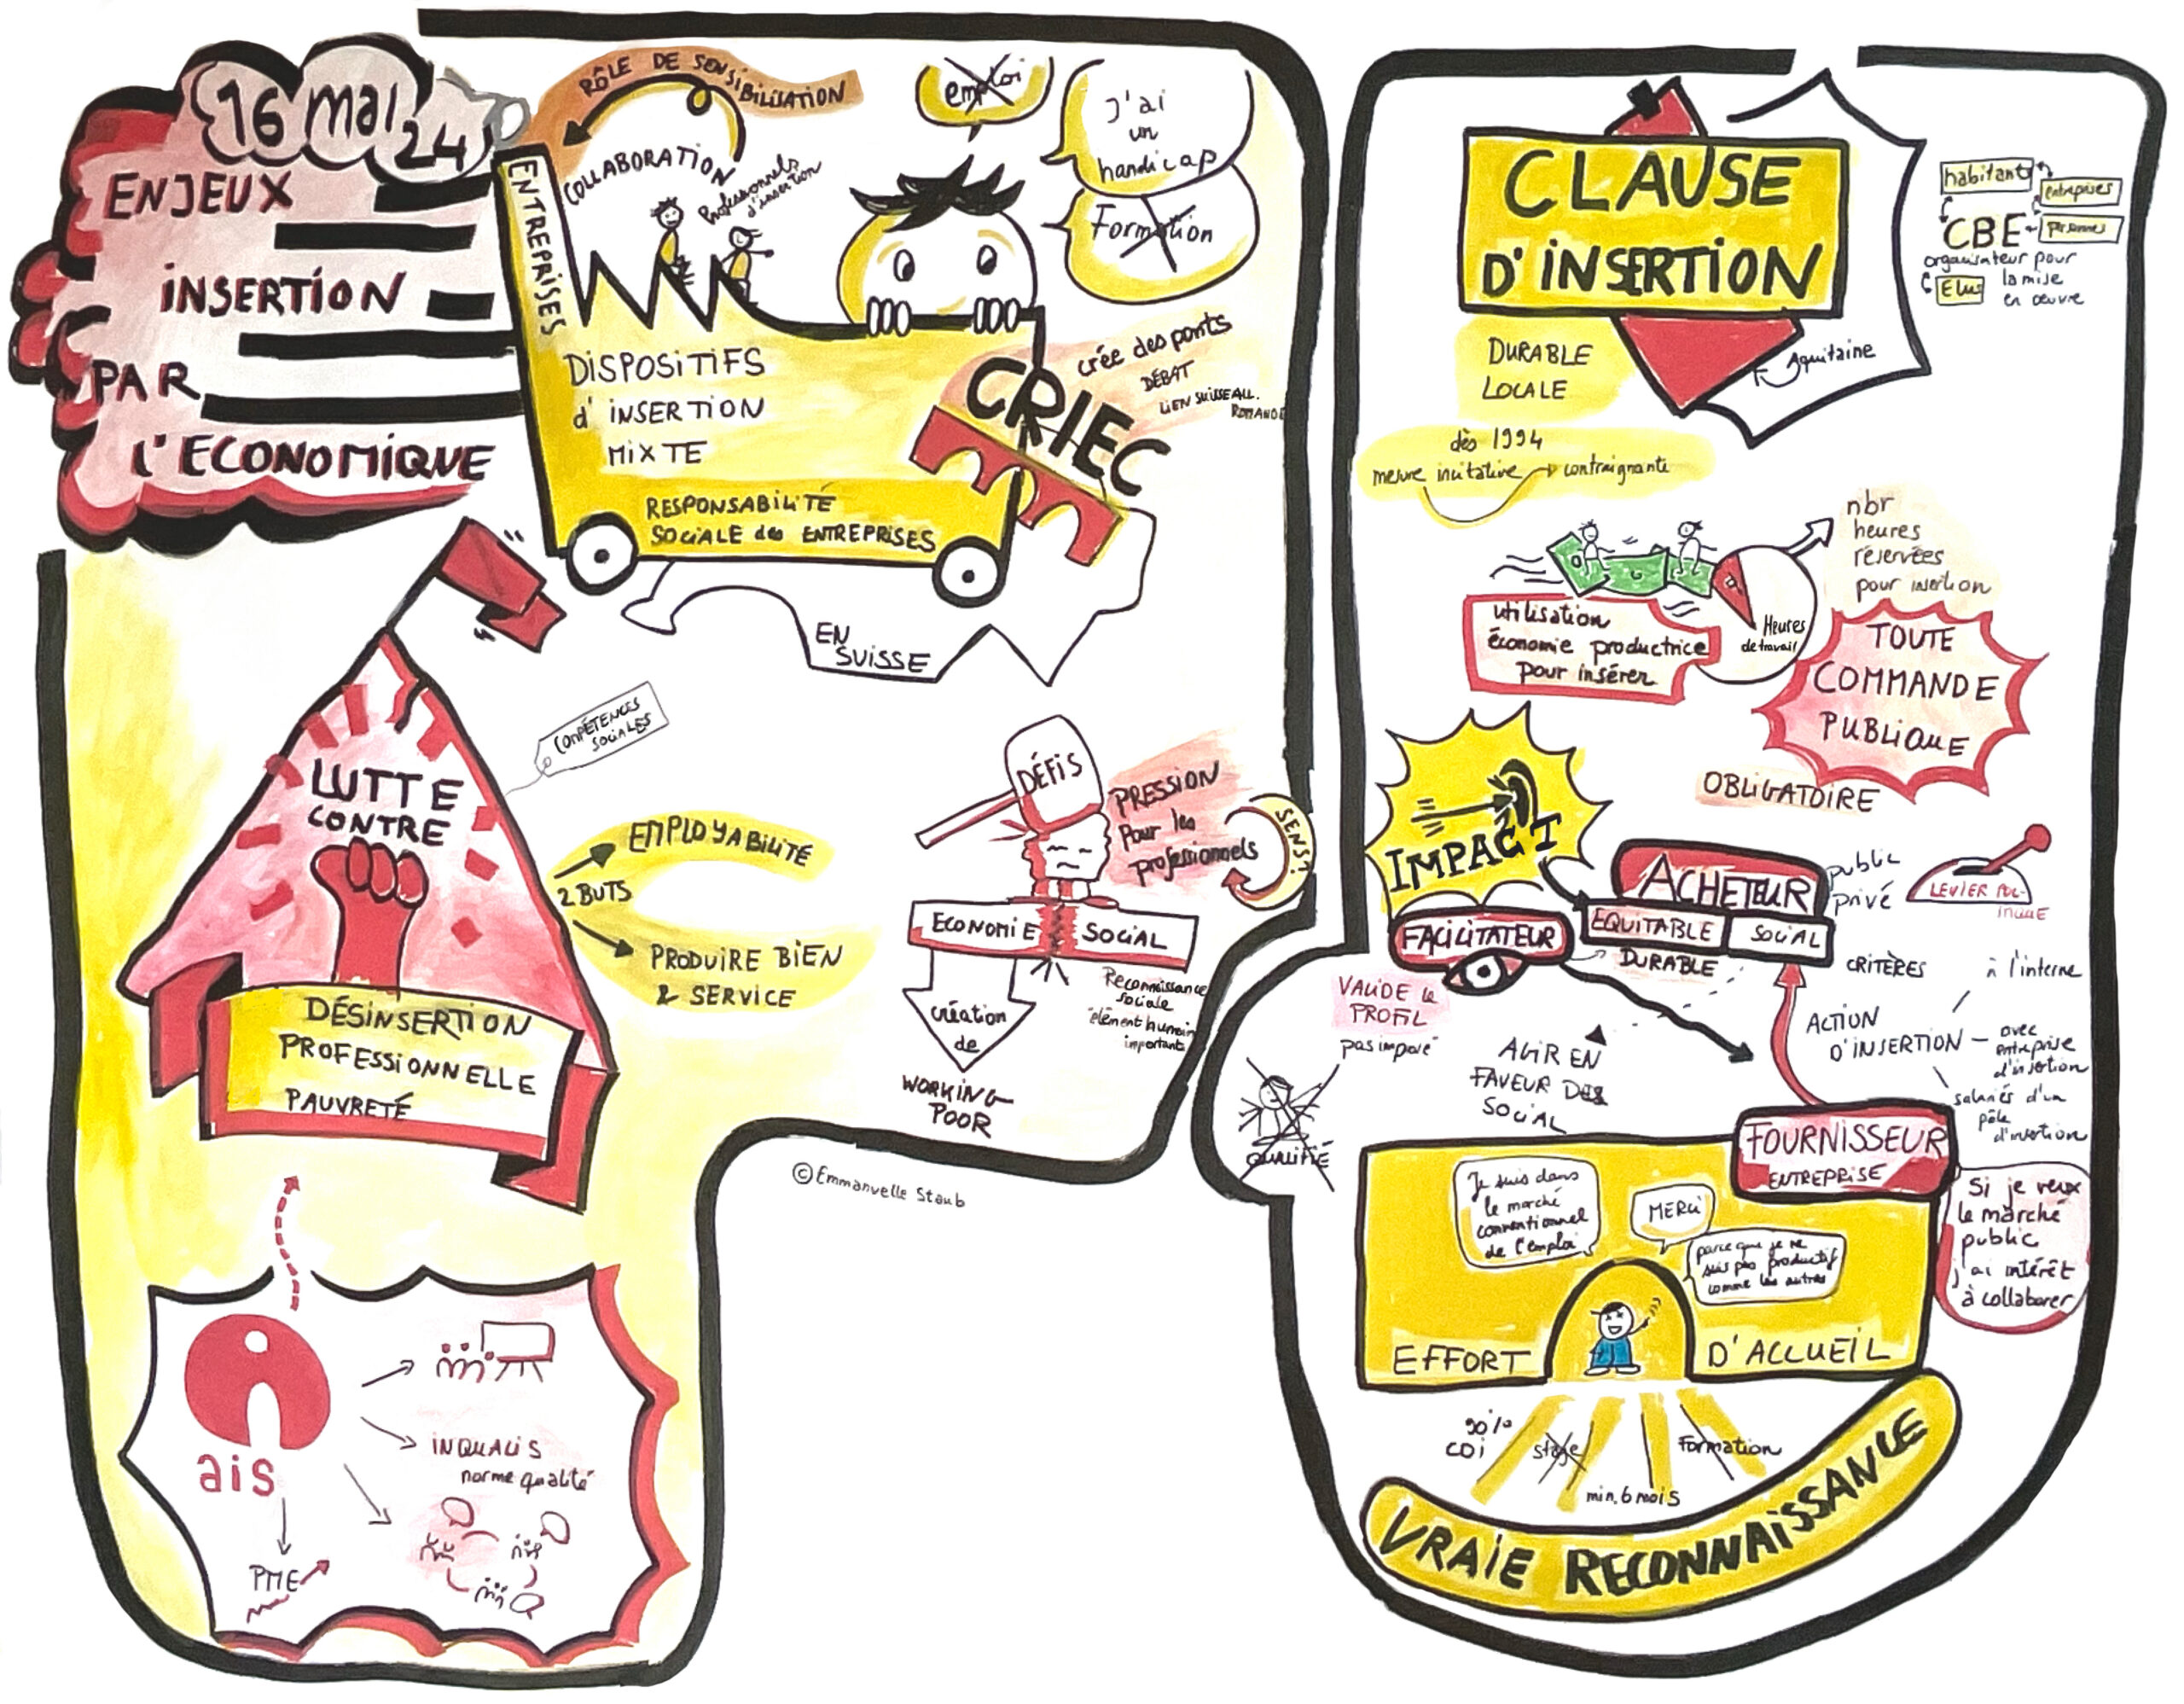 16 mai 24
ENJEUX
INSERTION
PAR
L'ECONOMIQUE
RÔLE DE SENSIBILISATION
COLLABORATION
Professionnels
d'insertion
ENTREPRISES
emploi
J'ai
un
handicap
Formation
DISPOSITIFS
d'INSERTION
MIXTE
RESPONSABILITÉ
SOCIALE des ENTREPRISES
CRIEC
crée des ponts
DÉBAT
LIEN SUISSE ALL.
ROMANDE
EN
SUISSE
COMPÉTENCES
SOCIALES
LUTTE
CONTRE
DÉSINSERTION
PROFESSIONNELLE
PAUVRETÉ
2 BUTS
EMPLOYABILITÉ
PRODUIRE BIEN
& SERVICE
DÉFIS
PRESSION
pour les
professionnels
SENS?
ECONOMIE
SOCIAL
Reconnaissance
sociale
élément humain
important
création
de
WORKING
POOR
© Emmanuelle Staub
ais
INQUALIS
norme qualité
PME
CLAUSE
D'INSERTION
habitant
entreprises
CBE
personnes
organisateur pour
la mise
en oeuvre
Elus
Aquitaine
DURABLE
LOCALE
dès 1994
mesure incitative
contraignante
nbr
heures
réservées
pour insertion
utilisation
économie productrice
pour insérer
Heures
de travail
TOUTE
COMMANDE
PUBLIQUE
OBLIGATOIRE
IMPACT
ACHETEUR
public
privé
LEVIER POL-
ITIQUE
FACILITATEUR
EQUITABLE
SOCIAL
DURABLE
CRITÈRES
VALIDE le
PROFIL
pas imposé
qualifié
AGIR EN
FAVEUR DES
SOCIAL
ACTION
D'INSERTION
à l'interne
avec
entreprise
d'insertion
salariés d'un
pôle
d'insertion
FOURNISSEUR
ENTREPRISE
Si je veux
le marché
public
j'ai intérêt
à collaborer
Je suis dans
le marché
conventionnel
de l'emploi
MERCI
parce que je ne
suis pas productif
comme les autres
EFFORT
D'ACCUEIL
90%
CDI
stage
min. 6 mois
Formation
VRAIE RECONNAISSANCE